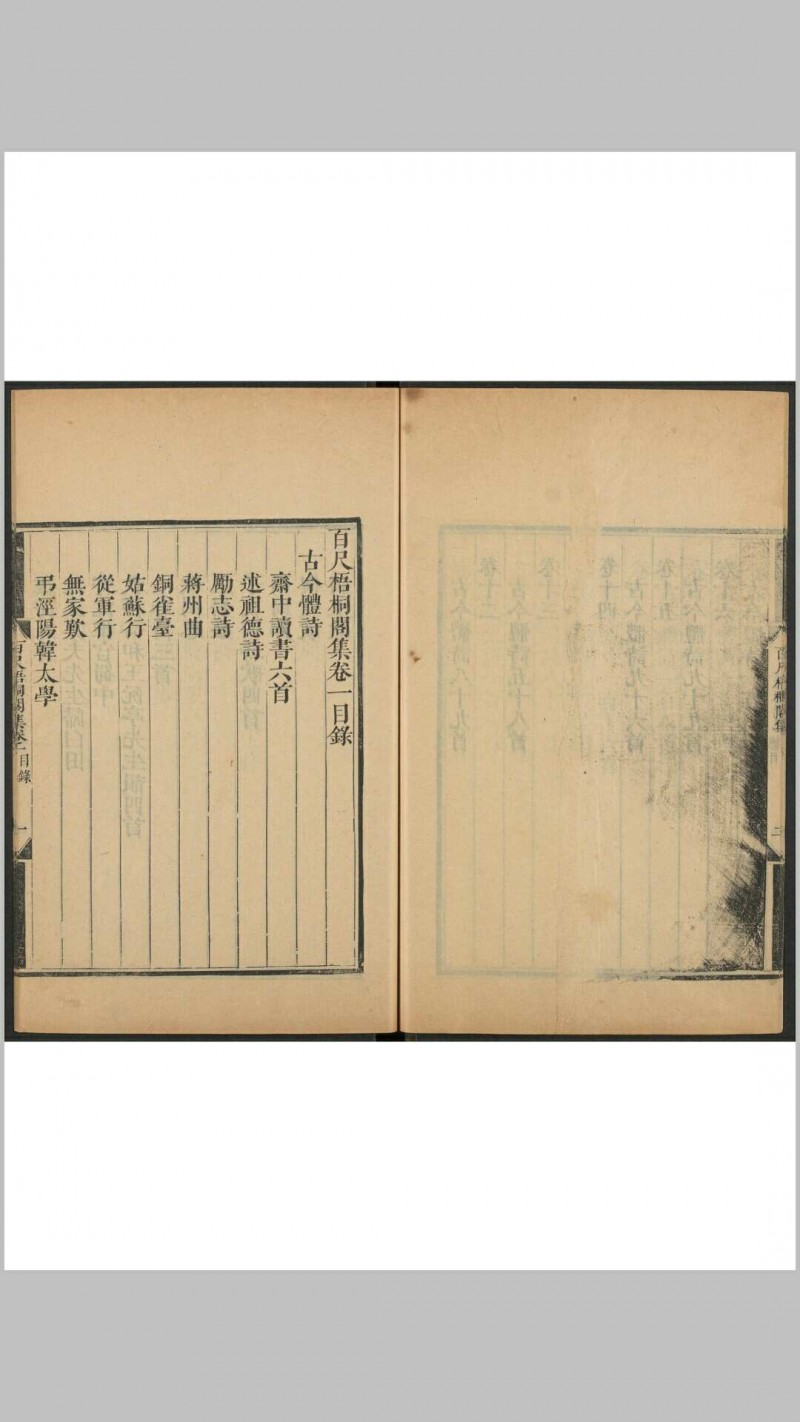 百尺梧桐閣集
二
百尺梧桐閣集卷一目錄
古今體詩
齋中讀書六首
述祖德詩
勵志詩
蔣州曲
銅雀臺
姑蘇行
從軍行
無家歎
弔涇陽韓太學
百尺梧桐閣集卷一 目錄
一